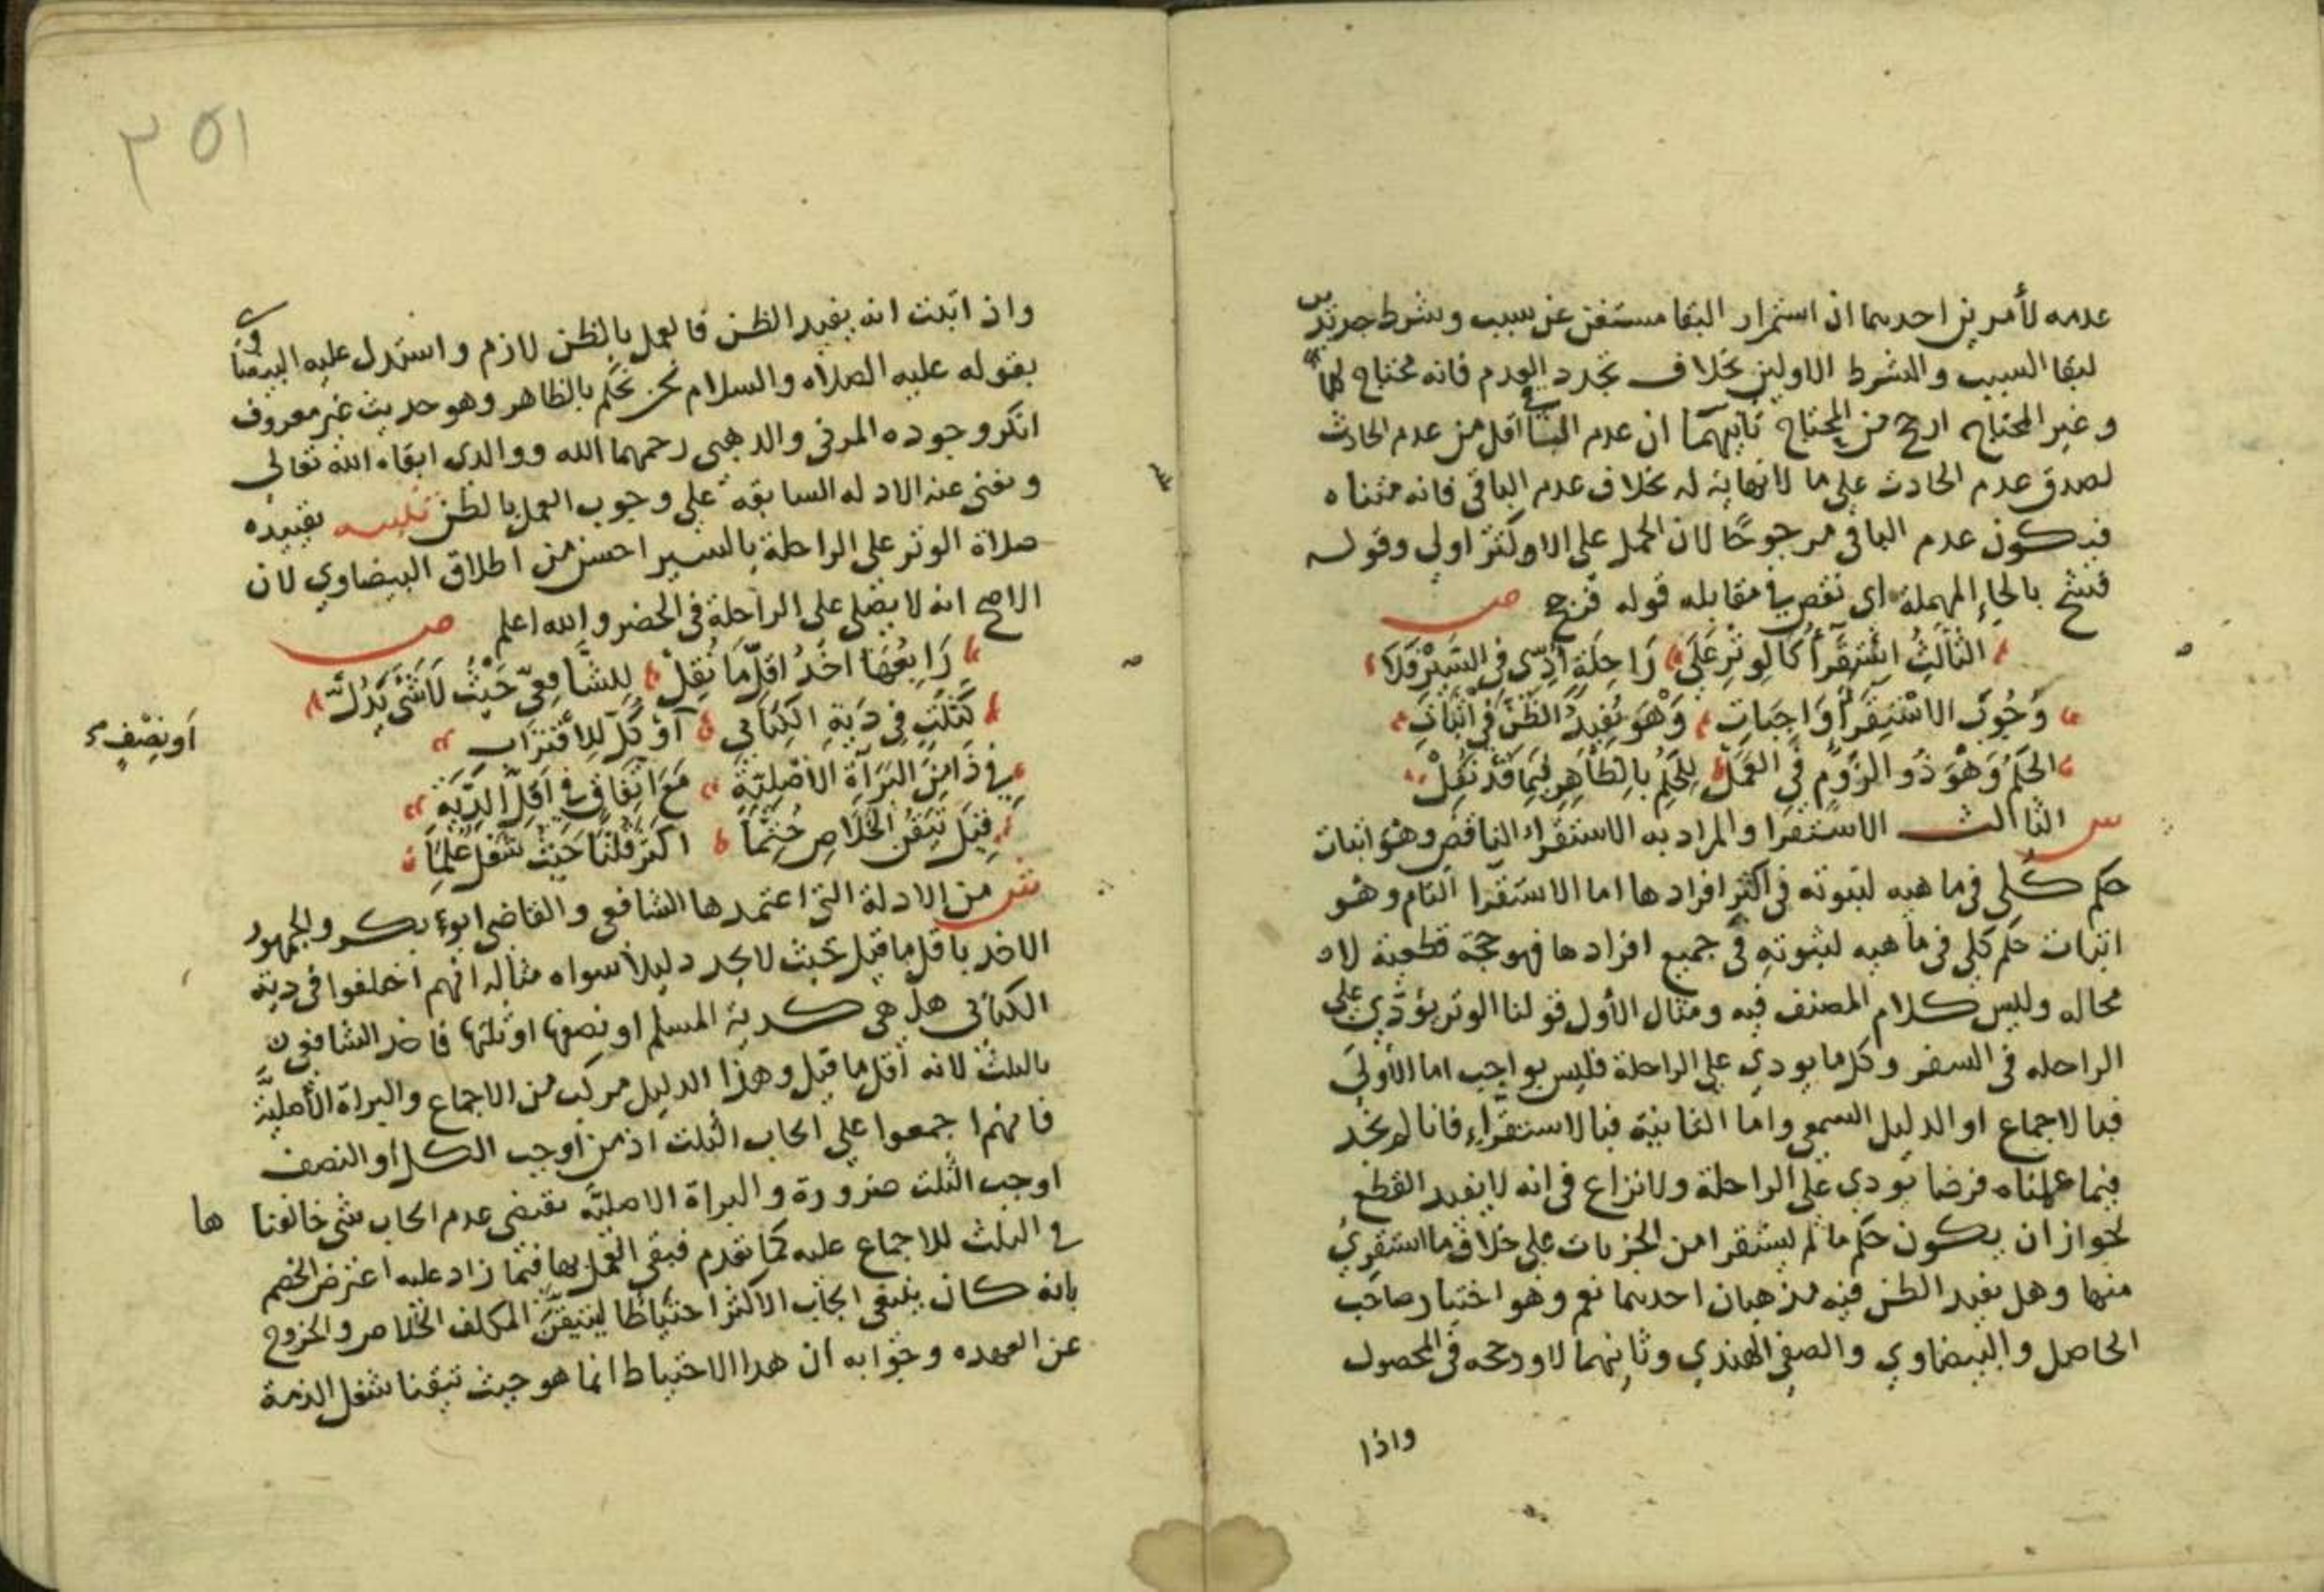 عدمه لأمرين احدهما ان استمرار البقا مستغن عن سبب وشرط جديدين
لبقا السبب والشرط الاولين بخلاف تجدد العدم فانه محتاج لهما
وغير المحتاج ارجح من المحتاج ثانيهما ان عدم الباقي اقل من عدم الحادث
لصدق عدم الحادث على ما لا نهاية له بخلاف عدم الباقي فانه متناه
فيكون عدم الباقي مرجوحًا لان الحمل على الاكثر اولى وقوله
بالحاء المهملة اي نقص في مقابله قوله ص
الثَّالِثُ اسْتِقْرَأُ كَالوِتْرِ عَلَى رَاحِلَةٍ أُدِّى فِي السَّيْرِ فَلَا
وُجُوبَ الاسْتِقْرَا وَاجِبَاتِ وَهْوَ يُفِيدُ الظَّنَّ فِي اثْبَاتِ
الحُكْمِ وَهْوَ ذُو الزُومٍ فِي العَمَلْ لِلحُكْمِ بِالظَّاهِرِ فِيمَا قَدْ نُقِلْ
س الثالث الاستقرا والمراد به الاستقراء الناقص وهو اثبات
حكم كُلي في ماهيه لثبوته في اكثر افرادها اما الاستقرا التام وهو
اثبات حكم كلي في ماهيه لثبوته في جميع افرادها فهو حجة قطعية لا
محاله وليس كلام المصنف فيه ومثال الأول قولنا الوتر يؤدي على
الراحله في السفر وكل ما يودي على الراحلة فليس بواجب اما الأولى
فبالاجماع او الدليل السمعي واما الثانية فبالاستقراء فانا لم نجد
فيما علمناه فرضا يودي على الراحلة ولا نزاع في انه لا يفيد القطع
لجواز ان يكون حكم ما لم يستقرا من الجزيات على خلاف ما استقرئ
منها وهل يفيد الظن فيه مذهبان احدهما نعم وهو اختيار صاحب
الحاصل والبيضاوي والصفي الهندي وثانيهما لا ورجحه في المحصول
واذا
٣٥١
واذ اثبت انه يفيد الظن فالعمل بالظن لازم واستدل عليه البيضاوي
بقوله عليه الصلاه والسلام نحن نحكم بالظاهر وهو حديث غير معروف
انكر وجوده المزي والذهبي رحمهما الله ووالدي ابقاه الله تعالى
ويغني عنه الادله السابقة على وجوب العمل بالظن تنبيه تقييده
صلاة الوتر على الراحلة بالسير احسن من اطلاق البيضاوي لان
الاصح انه لا يصلى على الراحلة في الحضر والله اعلم ص
رَابِعُهَا اخْذُ اقَلِّ مَا نُقِلْ لِلشَّافِعِيّ حَيْثُ لَا شَىْ يَدُلّ
كَثُلُثٍ فِي دِيَةِ الكِتَابِي أَوْ كُلّ لِلأقْتِرَابِ
أَو نِصْفٍ
فِي ذَا مِنَ البَرَآةِ الأَصْلِيَّةِ مَعَ اتِّفَاقٍ فِي اَقَلِّ الدِّيَةِ
قِيلَ تَيَقُّنُ الخَلَاصِ حُتِّمَا اكْثَرَ قُلْنَا حَيْثُ شُغْلٌ عُلِمَا
ش من الادلة التي اعتمدها الشافعي والقاضي ابو بكر والجمهور
الاخذ باقل ما قيل بحيث لا يجد دليلا سواه مثاله انهم اختلفوا في دية
الكتابي هل هي كدية المسلم او نصفها او ثلثها فاخذ الشافعي
بالثلث لانه أقل ما قيل وهذا الدليل مركب من الاجماع والبراة الأصلية
فانهم اجمعوا على ايجاب الثلث اذ من اوجب الكل أو النصف
اوجب الثلث ضرورة والبراة الاصليَّة تقتضي عدم ايجاب شي خالفنا ها
في الثلث للاجماع عليه كما تقدم فبقى العمل بها فيما زاد عليه اعترض الخصم
بانه كان ينبغي ايجاب الاكثر احتياطًا ليتيقّن المكلف الخلاص والخروج
عن العهده وجوابه ان هذا الاحتياط انما هو حيث تيقنا شغل الذمة